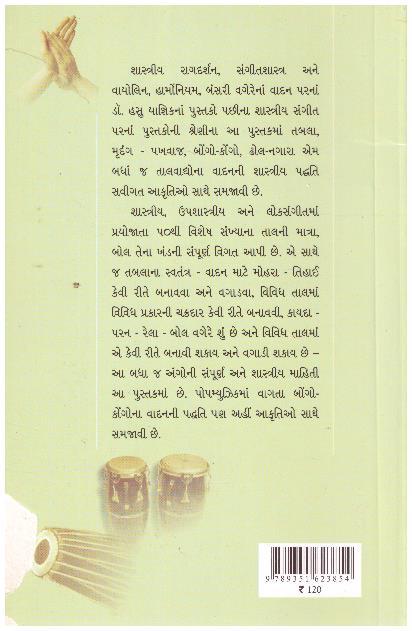 શાસ્ત્રીય રાગદર્શન, સંગીતશાસ્ત્ર અને
વાયોલિન, હાર્મોનિયમ, બંસરી વગેરેનાં વાદન પરનાં
ડૉ. હસુ યાજ્ઞિકનાં પુસ્તકો પછીના શાસ્ત્રીય સંગીત
પરનાં પુસ્તકોની શ્રેણીના આ પુસ્તકમાં તબલા,
મૃદંગ - પખવાજ, બોંગો-કોંગો, ઢોલ-નગારા એમ
બધાં જ તાલવાદ્યોના વાદનની શાસ્ત્રીય પદ્ધતિ
સવીગત આકૃતિઓ સાથે સમજાવી છે.
શાસ્ત્રીય, ઉપશાસ્ત્રીય અને લોકસંગીતમાં
પ્રયોજાતા ૫૦થી વિશેષ સંખ્યાના તાલની માત્રા,
બોલ તેના ખંડની સંપૂર્ણ વિગત આપી છે. એ સાથે
જ તબલાના સ્વતંત્ર - વાદન માટે મોહરા - તિહાઈ
કેવી રીતે બનાવવા અને વગાડવા, વિવિધ તાલમાં
વિવિધ પ્રકારની ચક્રદાર કેવી રીતે બનાવવી, કાયદા -
પરન - રેલા - બોલ વગેરે શું છે અને વિવિધ તાલમાં
એ કેવી રીતે બનાવી શકાય અને વગાડી શકાય છે –
આ બધા જ અંગોની સંપૂર્ણ અને શાસ્ત્રીય માહિતી
આ પુસ્તકમાં છે. પોપમ્યુઝિકમાં વાગતા બોંગો-
કોંગોના વાદનની પદ્ધતિ પણ અહીં આકૃતિઓ સાથે
સમજાવી છે.
9 789351 623854
₹ 120